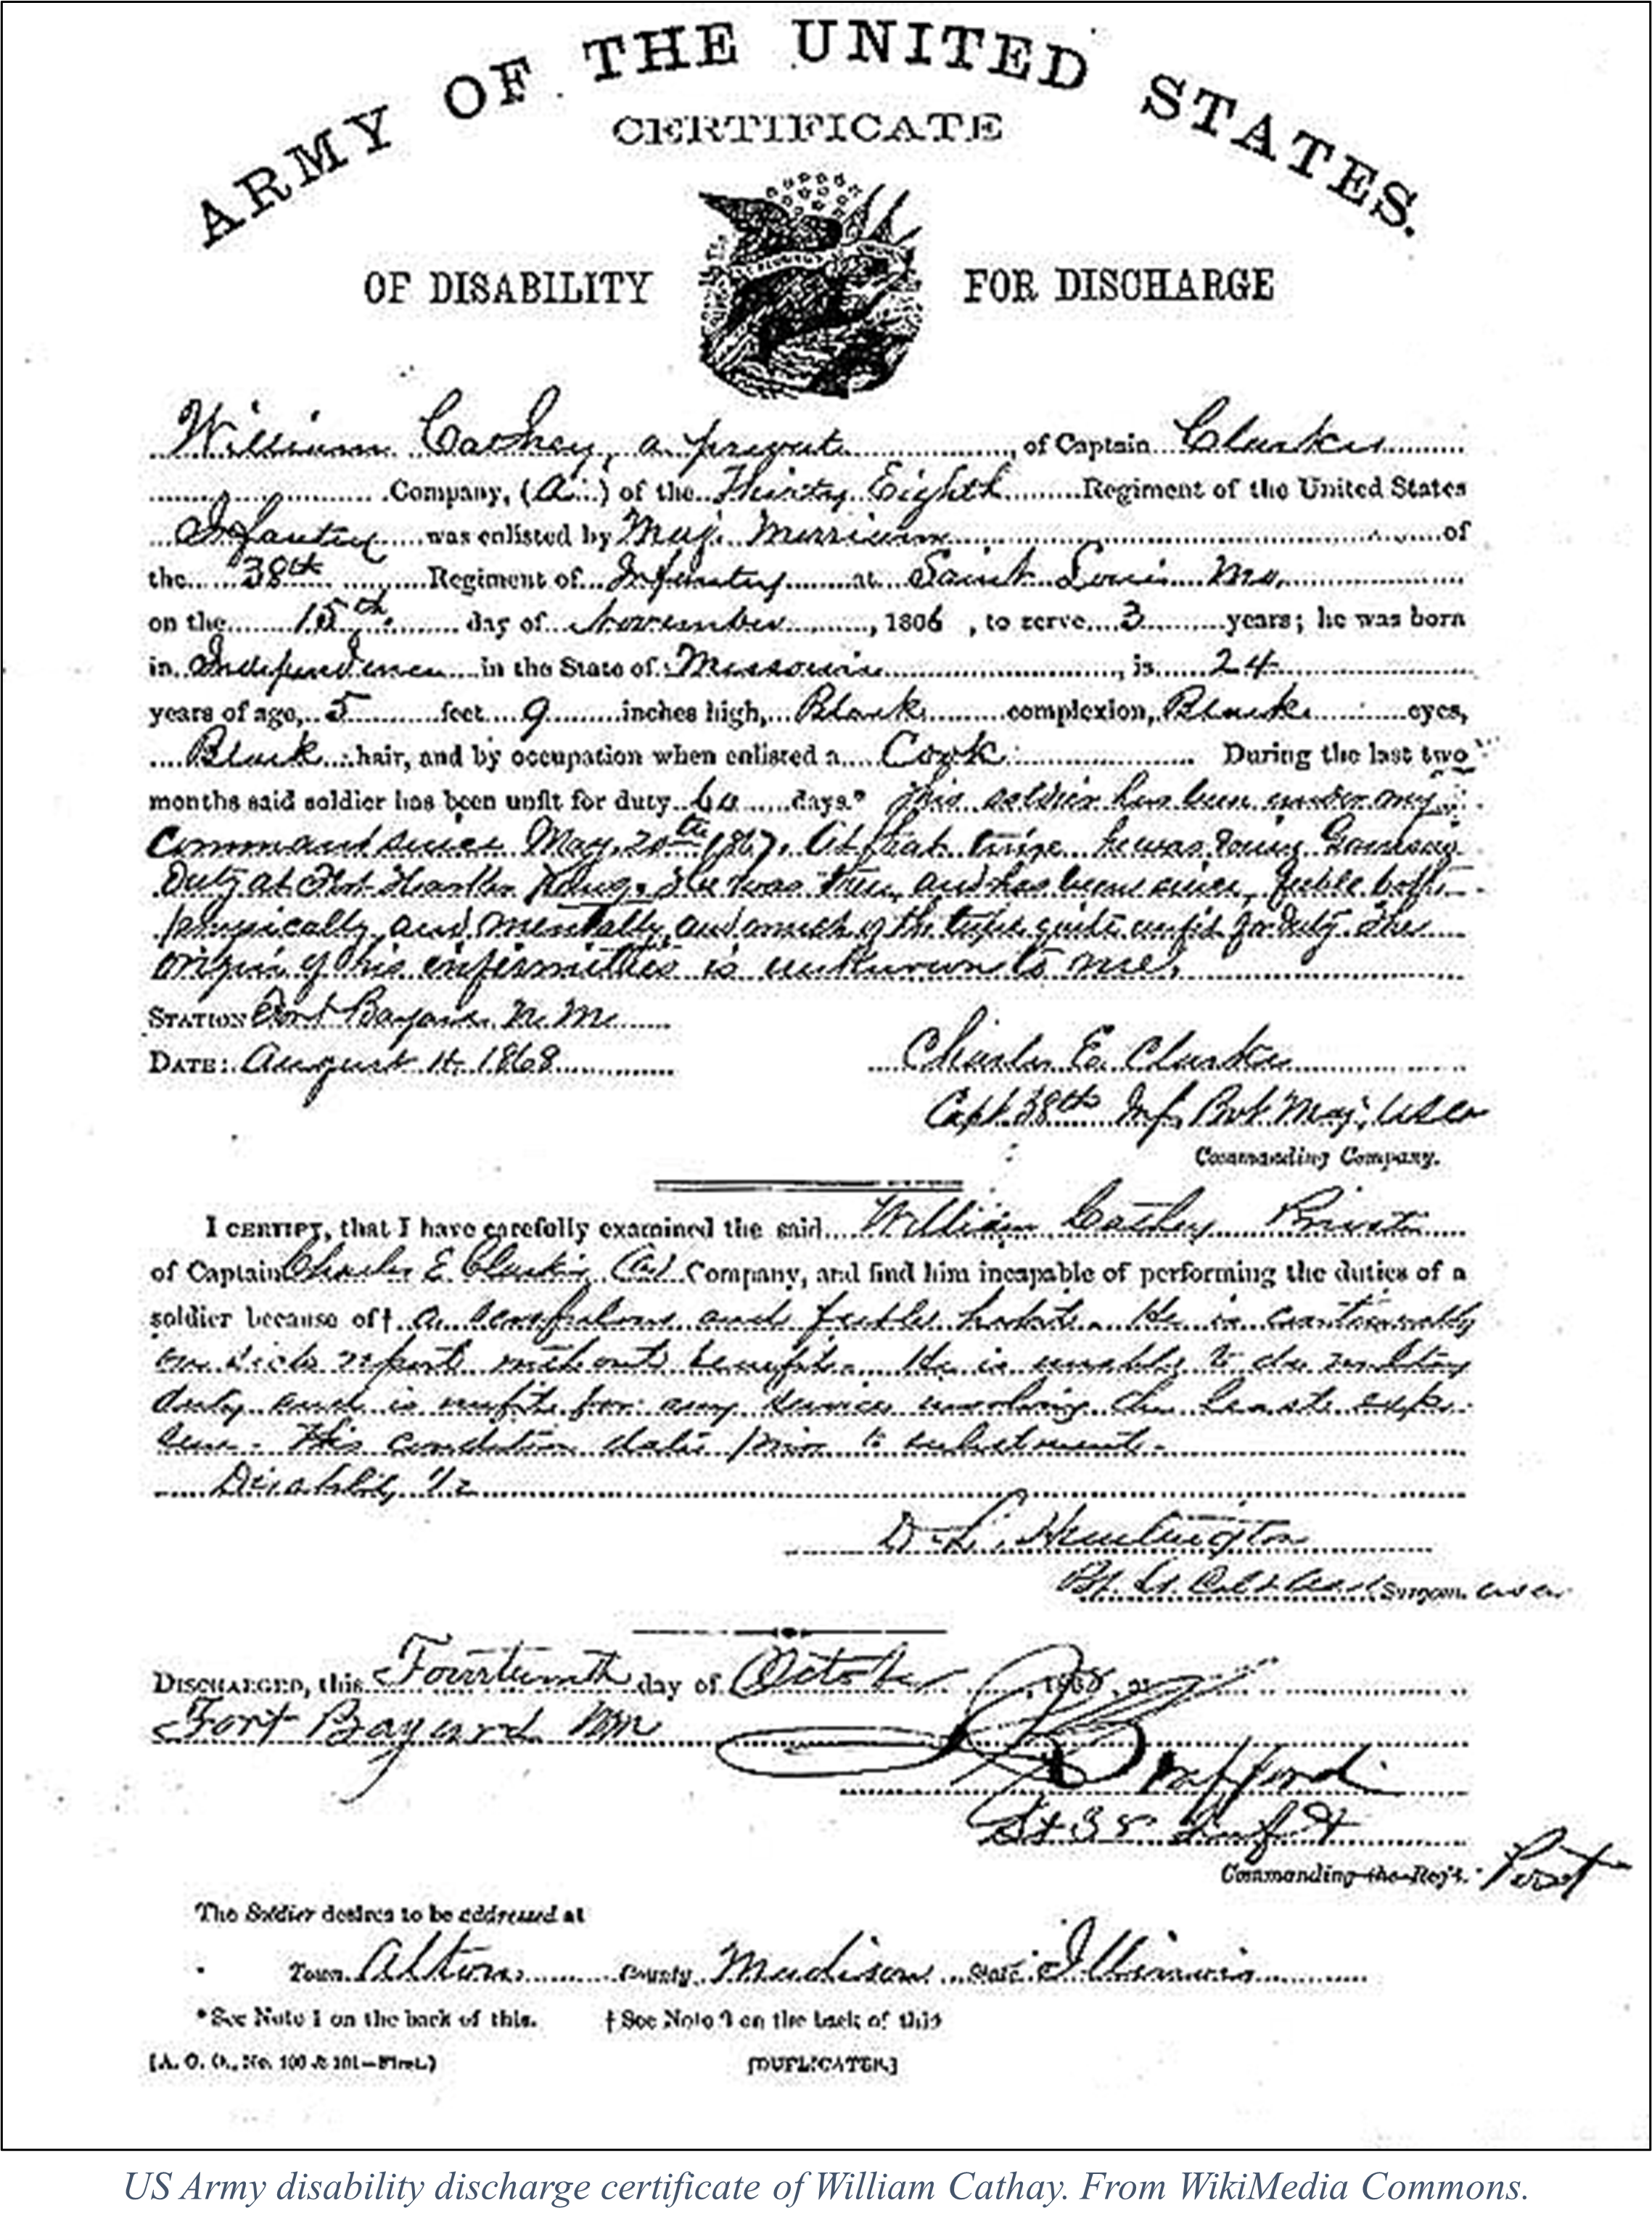 ARMY OF THE UNITED STATES.
CERTIFICATE
OF DISABILITY FOR DISCHARGE
William Cathey, a private, of Captain Clarke's
Company, (A) of the Thirty Eighth Regiment of the United States
Infantry was enlisted by Maj. Merriam of
the 38th Regiment of Infantry at Saint Louis Mo.
on the 15th day of November, 1866, to serve 3 years; he was born
in Independence in the State of Missouri, is 24
years of age, 5 feet 9 inches high, Black complexion, Black eyes,
Black hair, and by occupation when enlisted a Cook. During the last two
months said soldier has been unfit for duty 60 days.* This soldier has been under my
command since May 20th 1867. At that time he was doing Garrison
Duty at Fort Harker Kans. He was then, and has been since, feeble both
physically and mentally, and much of the time quite unfit for duty. The
origin of his infirmities is unknown to me.
STATION Fort Bayard N. M.
DATE: August 1868
Charles E. Clarke
Capt. 38th Inf. Bvt Maj. USA
Commanding Company.
I CERTIFY, that I have carefully examined the said William Cathey Private
of Captain Charles E. Clarke's (A) Company, and find him incapable of performing the duties of a
soldier because of† a scrofulous and feeble habit. He is continually
on sick report without benefit. He is unable to do military
duty and is unfit for any service involving the least
This condition dates prior to enlistment.
Disability 1/2
D L. Huntington
Surgeon. USA
DISCHARGED, this Fourteenth day of October, 1868, at
Fort Bayard NM
38 Inf
Commanding the Reg't. Post
The Soldier desires to be addressed at
Town Alton County Madison State Illinois
*See Note 1 on the back of this. †See Note 2 on the back of this
[A. G. O., No. 100 & 101—First.] [DUPLICATES.]
US Army disability discharge certificate of William Cathay. From WikiMedia Commons.